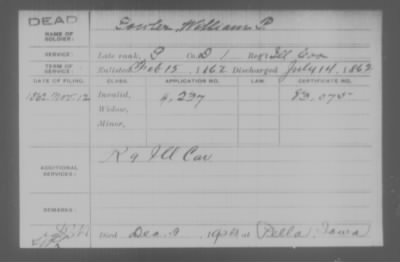 DEAD
NAME OF SOLDIER: Fowler William P.
SERVICE: Late rank, P Co. D 1 Reg't Ill Cav
TERM OF SERVICE: Enlisted Feb 15, 1862 Discharged July 14, 1862
DATE OF FILING. CLASS. APPLICATION NO. LAW. CERTIFICATE NO.
1862 Nov. 12 Invalid, 4,237 83,075
Widow,
Minor,
ADDITIONAL SERVICES: K 9 Ill Cav
REMARKS:
Died Dec. 9, at Pella, Iowa